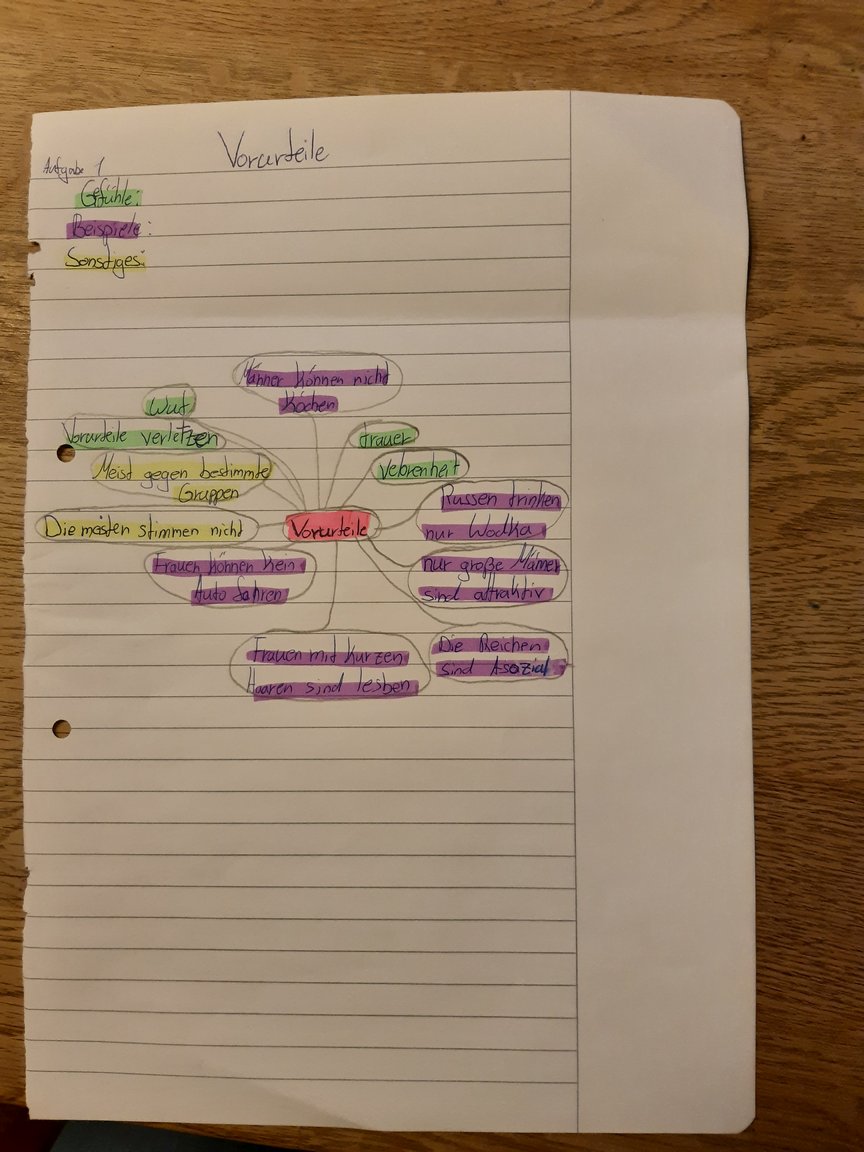 Vorurteile
Aufgabe 1
Gefühle:
Beispiele:
Sonstiges:
Männer können nicht
Kochen
Wut
Vorurteile verletzen
trauer
Meist gegen bestimmte
Gruppen
vebrenheit
Russen trinken
nur Wodka
Die meisten stimmen nicht
Vorurteile
Frauen können kein
Auto fahren
nur große Männer
sind attraktiv
Frauen mit kurzen
Haaren sind lesben
Die Reichen
sind Asozial